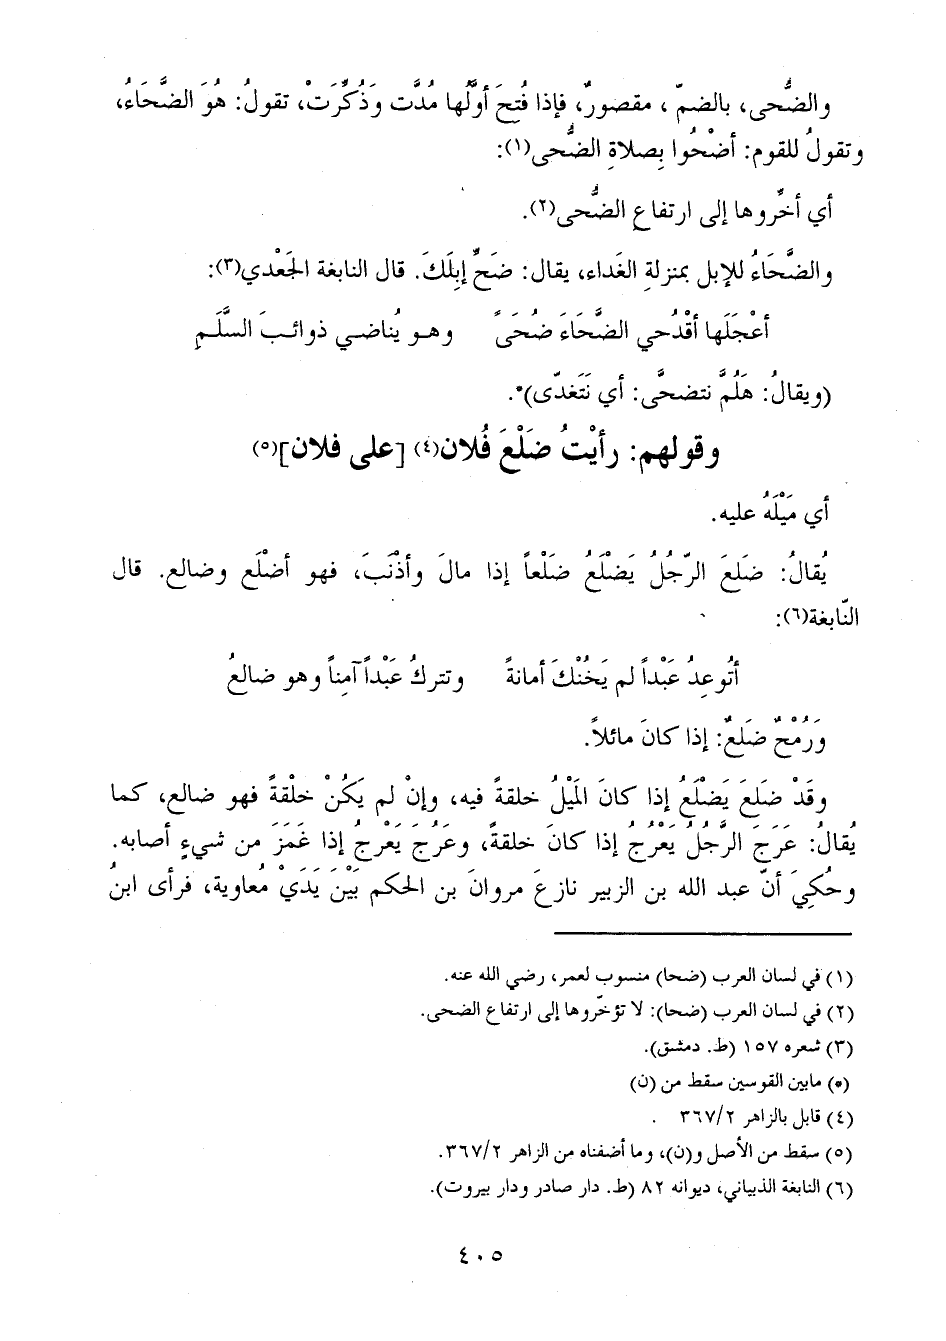 والضُّحى، بالضمّ، مقصورٌ، فإذا فُتحَ أوَّلُها مُدَّت وَذُكِّرَتْ، تقولُ: هُوَ الضَّحَاءُ،
وتقولُ للقوم: أضْحُوا بِصلاةِ الضُّحى(١):
أي أخِّروها إلى ارتفاعِ الضُّحى(٢).
والضَّحَاءُ للإبل بمنزلةِ الغَداء، يقال: ضَحٍّ إبلَكَ. قال النابغة الجَعْدي(٣):
أعْجَلَها أقْدُحي الضَّحَاءَ ضُحَىً وهـو يُناضـي ذوائـبَ السَّلَـمِ
(ويقالُ: هَلُمَّ نتضحَّى: أي نَتَغدّى)*.
وقولهم: رأيْتُ ضَلْعَ فُلان(٤) [على فلان](٥)
أي مَيْلَهُ عليه.
يُقالُ: ضَلَعَ الرّجُلُ يَضْلَعُ ضَلْعاً إذا مالَ وأذْنَبَ، فهو أضْلَع وضالع. قال
النّابغة(٦):
أتُوعِدُ عَبْداً لم يَخُنْكَ أمانةً وتتركُ عَبْداً آمِناً وهو ضالعُ
وَرُمْحٌ ضَلَعٌ: إذا كانَ مائلاً.
وقَدْ ضَلَعَ يَضْلَعُ إذا كانَ المَيْلُ خلقةً فيه، وإنْ لم يَكُنْ خلْقةً فهو ضالع، كما
يُقالُ: عَرَجَ الرَّجُلُ يَعْرُجُ إذا كانَ خلقةً، وعَرُجَ يَعْرجُ إذا غَمَزَ من شيءٍ أصابه.
وحُكِيَ أنّ عبد الله بن الزبير نازعَ مروانَ بن الحكم بَيْنَ يَدَيْ مُعاوية، فرأى ابنُ
(١) في لسان العرب (ضحا) منسوب لعمر، رضي الله عنه.
(٢) في لسان العرب (ضحا): لا تؤخّروها إلى ارتفاع الضحى.
(٣) شعره ١٥٧ (ط. دمشق).
(*) مابين القوسين سقط من (ن)
(٤) قابل بالزاهر ٣٦٧/٢ .
(٥) سقط من الأصل و(ن)، وما أضفناه من الزاهر ٣٦٧/٢.
(٦) النابغة الذبياني، ديوانه ٨٢ (ط. دار صادر ودار بيروت).
٤٠٥